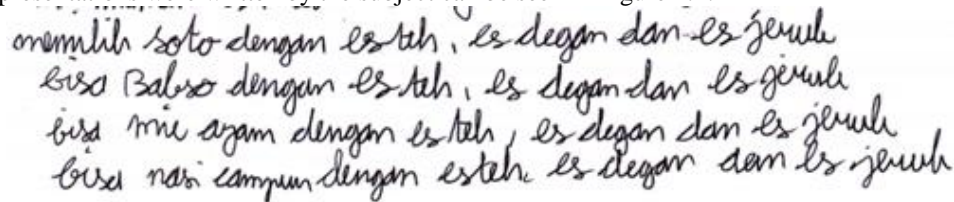 memilih soto dengan es teh, es degan dan es jeruk
bisa Bakso dengan es teh, es degan dan es jeruk
bisa mie ayam dengan es teh, es degan dan es jeruk
bisa nasi campur dengan es teh, es degan dan es jeruk